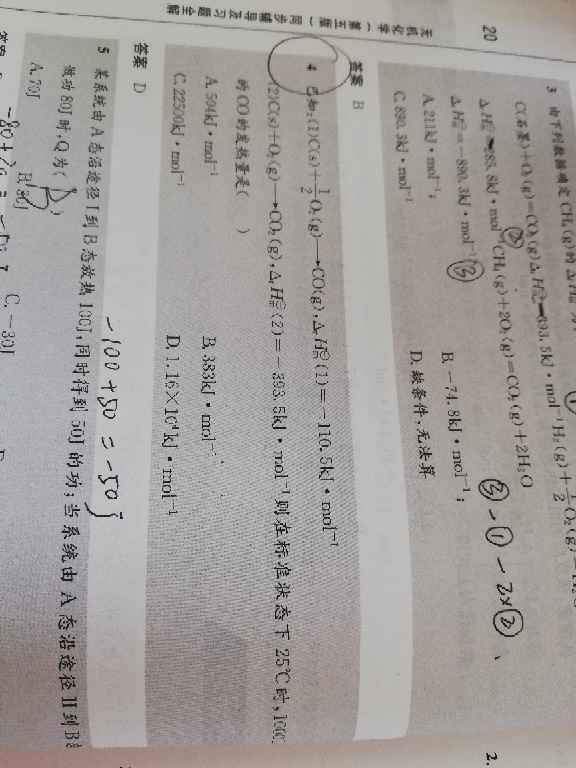 20
无机化学(第五版)同步辅导及习题全解
3 由下列数据确定CH₄(g)的Δ
①
C(石墨)+O₂(g)=CO₂(g) ΔfHm⊖=-393.5kJ·mol⁻¹ H₂(g)+1/2O₂(g)
②
CH₄(g)+2O₂(g)=CO₂(g)+2H₂O
ΔrHm⊖=-890.3kJ·mol⁻¹ ③
③-①-2×②
A. 211kJ·mol⁻¹;
B. -74.8kJ·mol⁻¹;
C. 890.3kJ·mol⁻¹
D. 缺条件,无法算
答案 B
4 已知:(1)C(s)+1/2O₂(g)→CO(g),ΔrHm⊖(1)=-110.5kJ·mol⁻¹
(2)C(s)+O₂(g)→CO₂(g),ΔrHm⊖(2)=-393.5kJ·mol⁻¹则在标准状态下25℃时,1000
的CO的发热量是( )
A. 504kJ·mol⁻¹
B. 383kJ·mol⁻¹
C. 22500kJ·mol⁻¹
D. 1.16×10⁴kJ·mol⁻¹
答案 D
-100+50=-50J
5 某系统由A态沿途径Ⅰ到B态放热100J,同时得到50J的功;当系统由A态沿途径Ⅱ到B态
做功80J时,Q为( B )
A. 70J
B. 30J
C. -30J
答案
-80+
2.